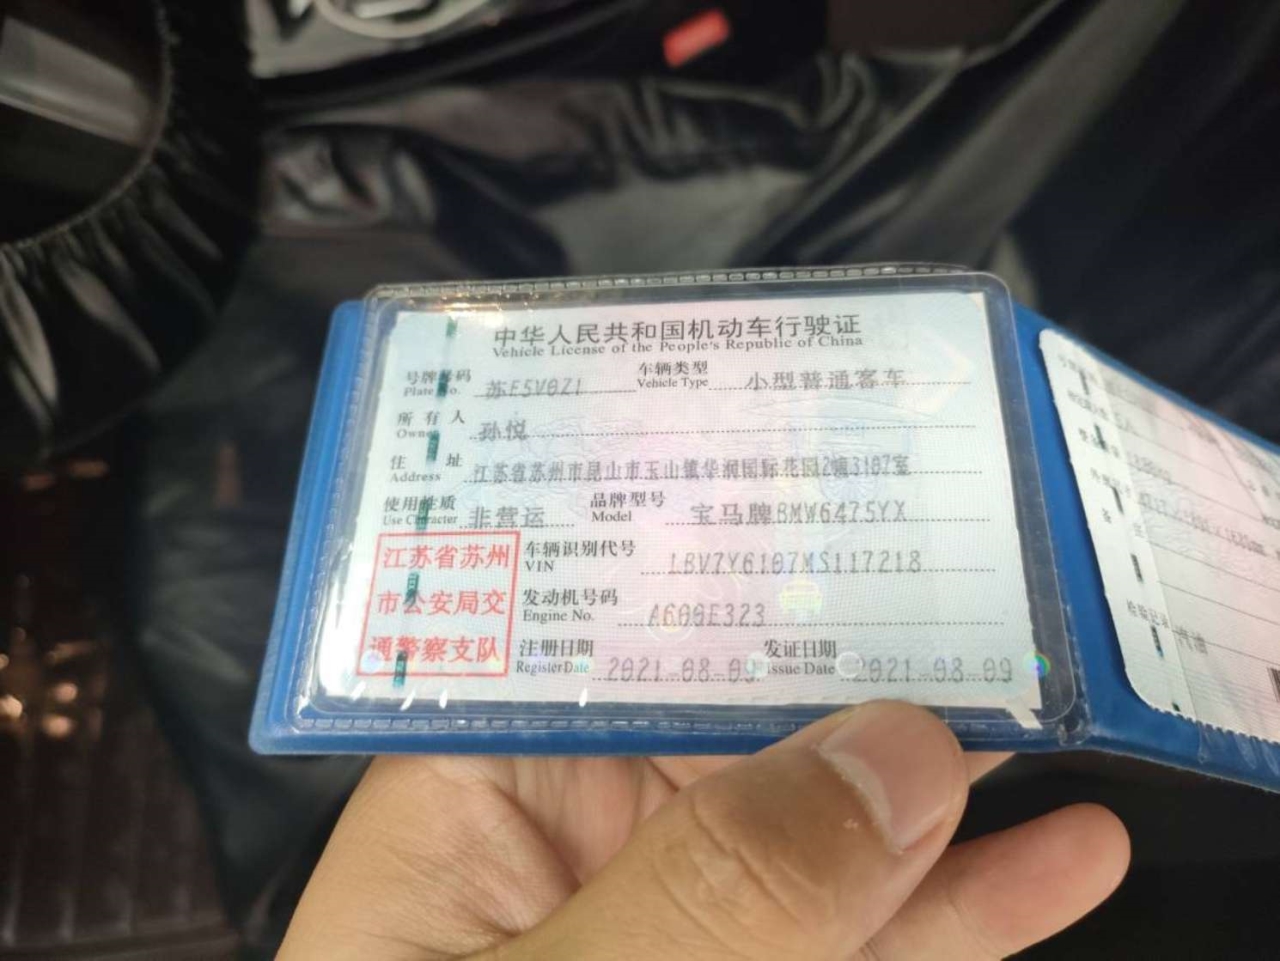 中华人民共和国机动车行驶证
Vehicle License of the People's Republic of China
号牌号码 苏E5V0Z1 车辆类型 小型普通客车
Plate No. Vehicle Type
所有人 孙悦
Owner
住址 江苏省苏州市昆山市玉山镇华润国际花园2幢3107室
Address
使用性质 非营运 品牌型号 宝马牌BMW6475YX
Use Character Model
江苏省苏州
市公安局交
通警察支队
车辆识别代号 LBV7Y6107MS117218
VIN
发动机号码 A600E323
Engine No.
注册日期 2021-08-09 发证日期 2021-08-09
Register Date Issue Date